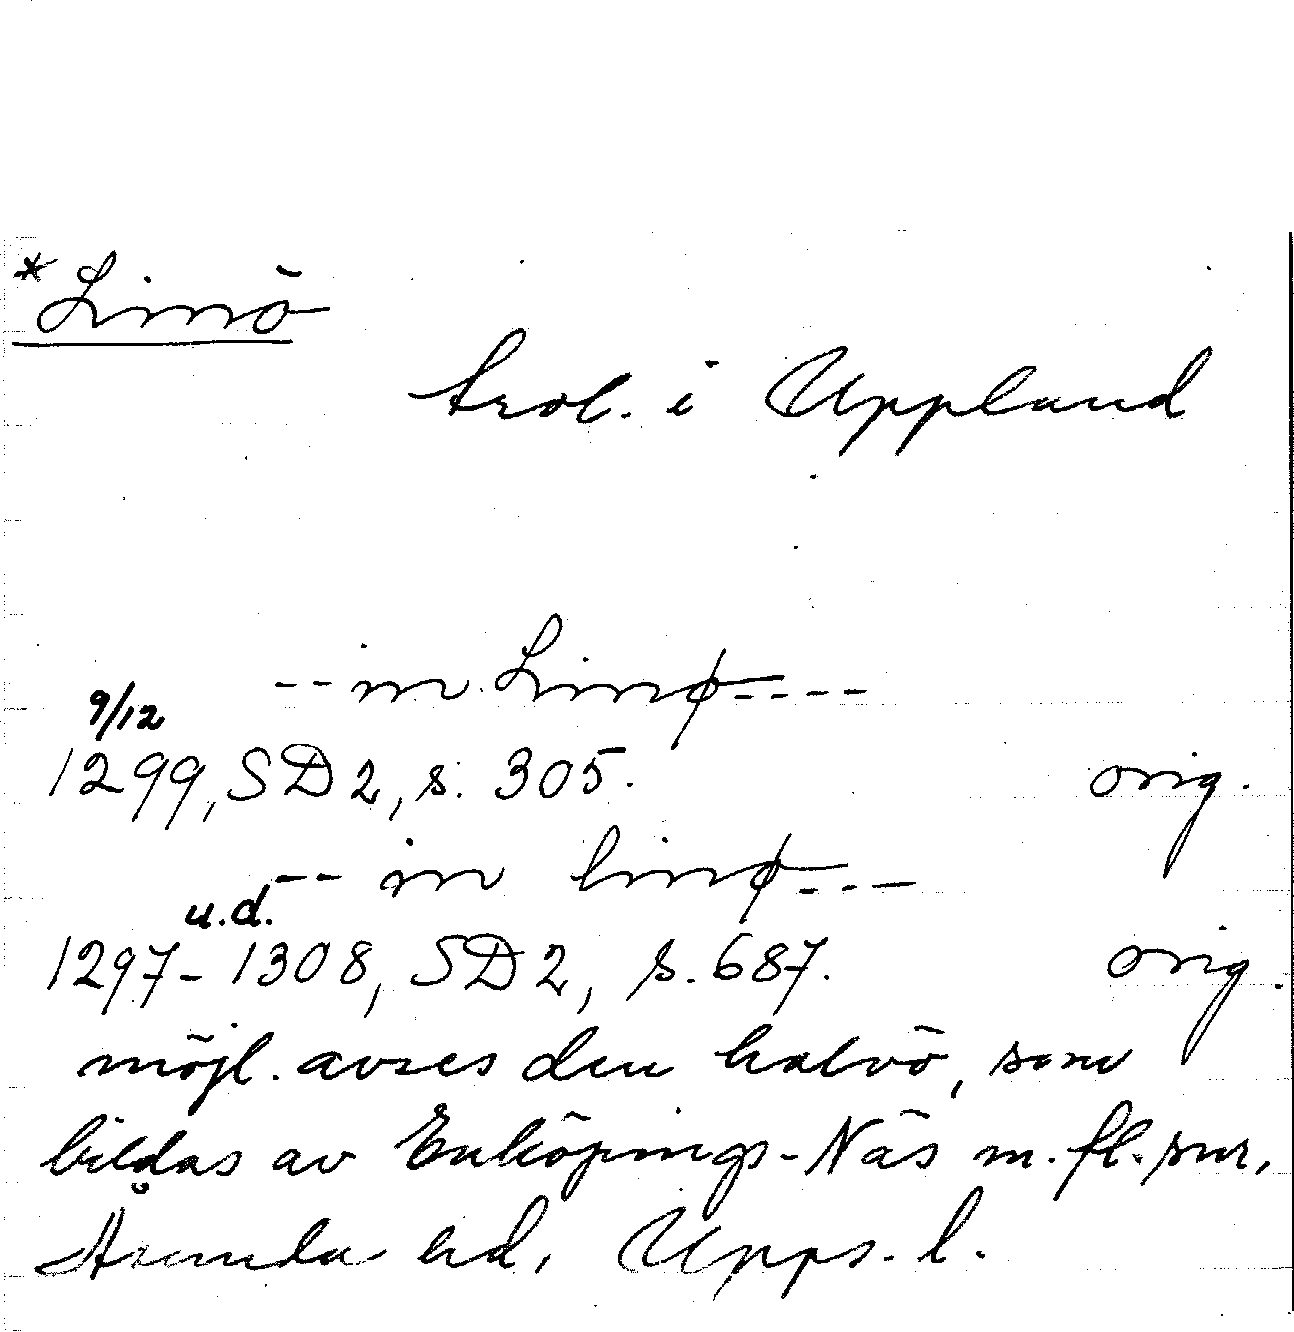 *Linö
trol. i Uppland
-- in Linø----
9/12
1299, SD 2, s. 305. orig.
-- in linø---
u.d.
1297-1308, SD 2, s. 687. orig.
möjl. avses den halvö, som
bildas av Enköpings-Näs m.fl. snr,
Åsunda hd, Upps. l.